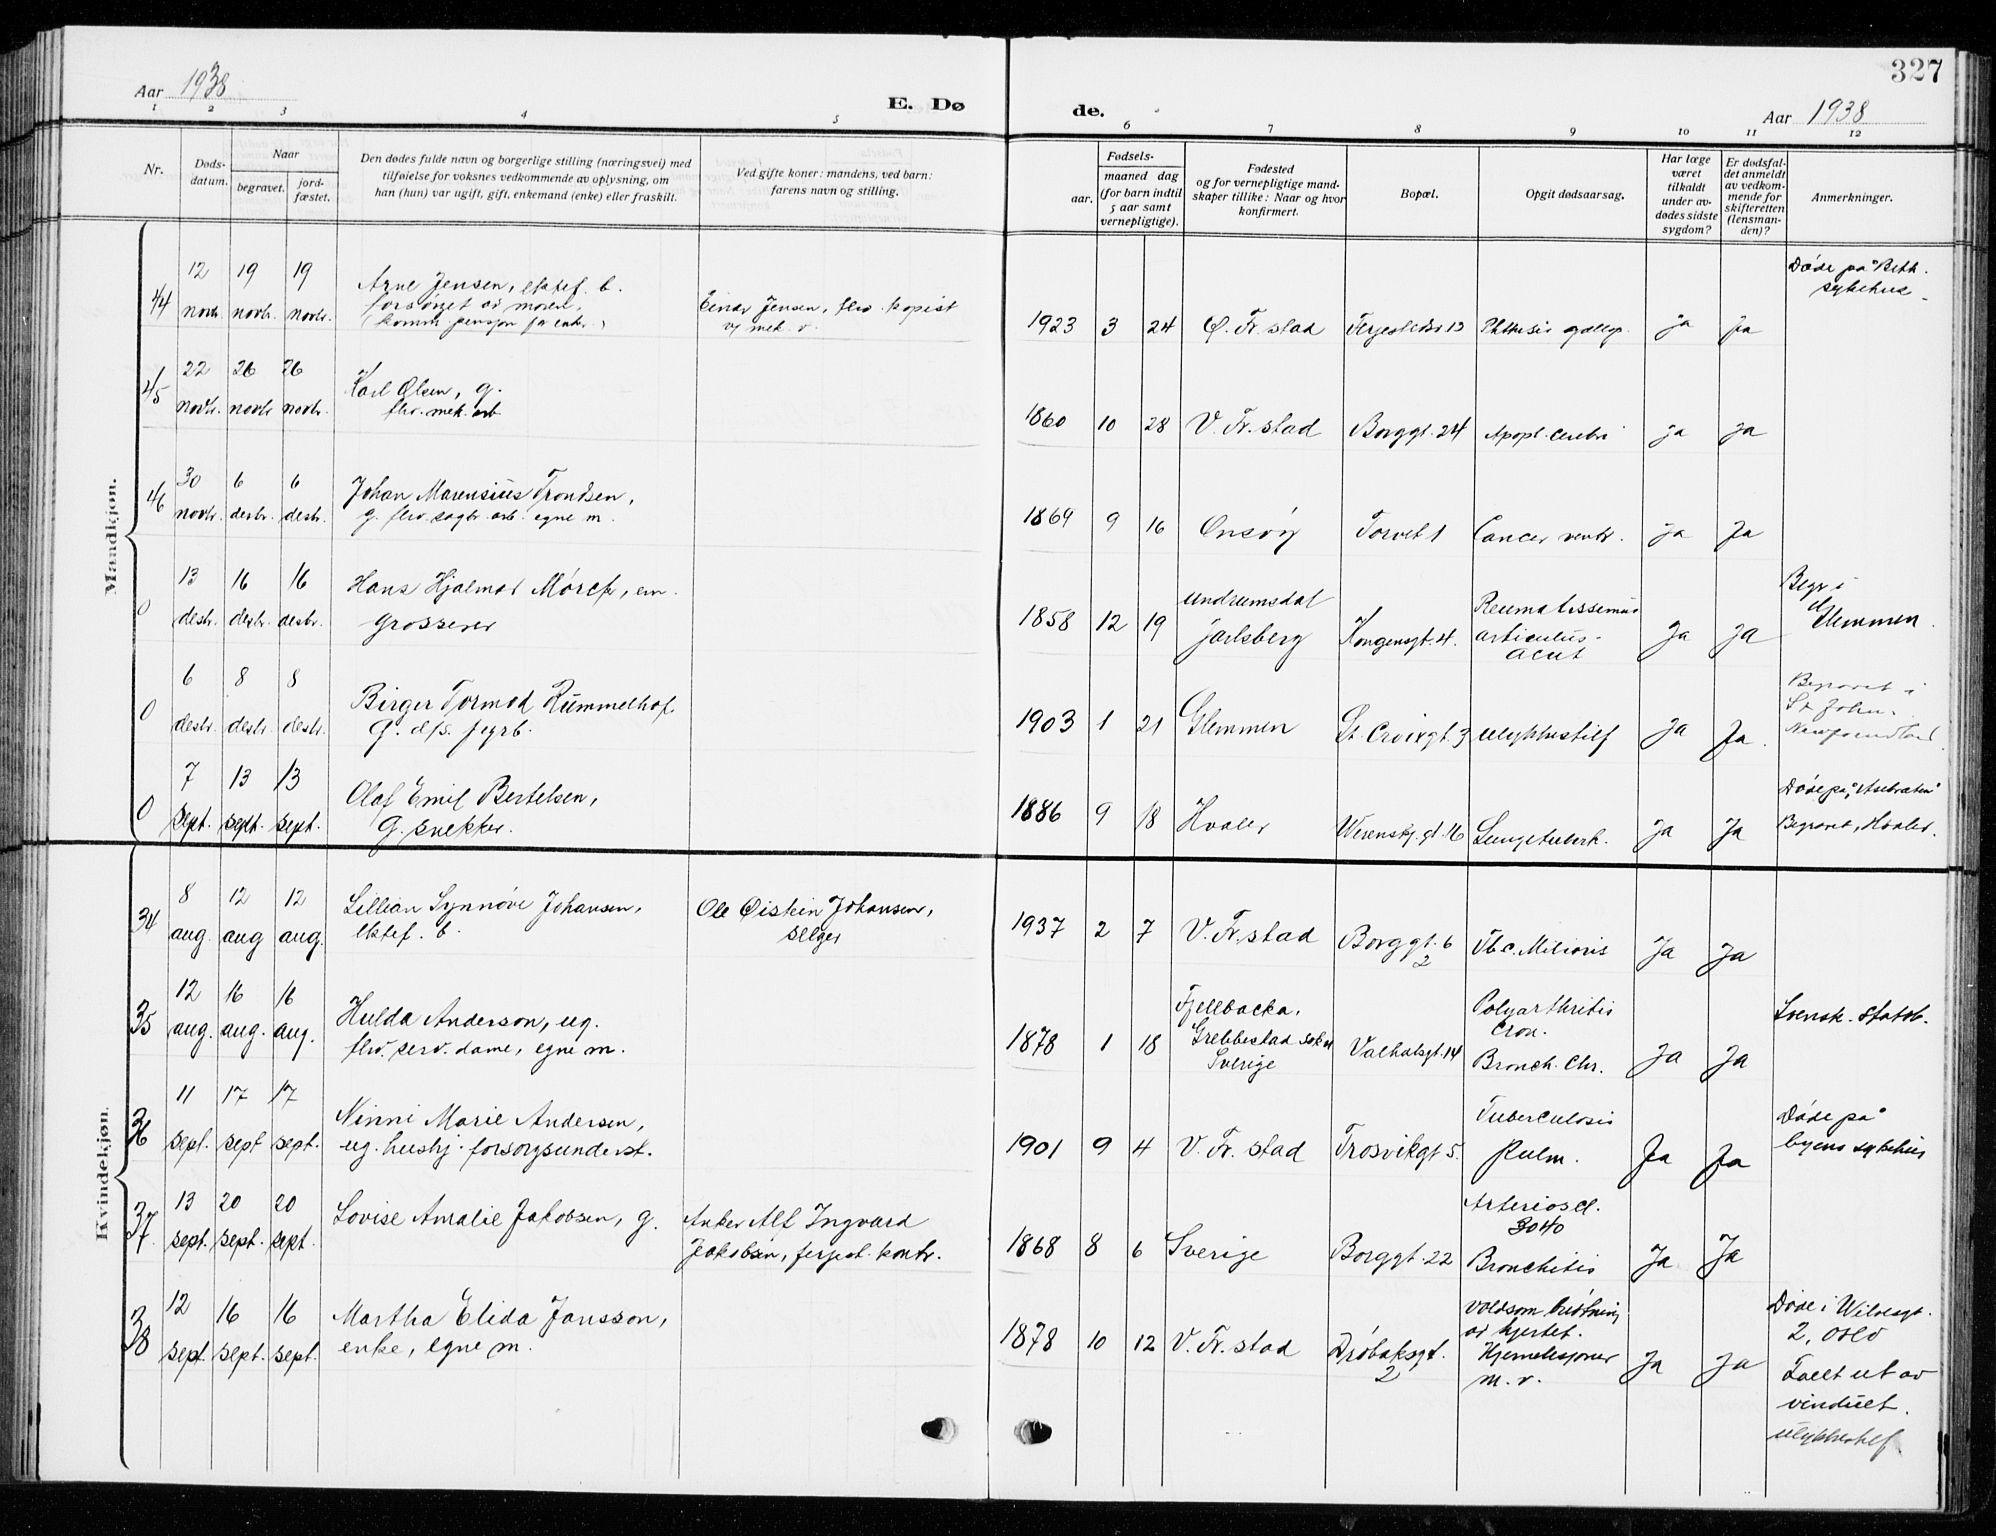 327
Aar 1938
E. Dø
de.
Aar 1938
1 2 3 4 5 6 7 8 9 10 11 12
Nr.
Døds-
datum.
Naar
begravet.
jord-
fæstet.
Den dødes fulde navn og borgerlige stilling (næringsvei) med
tilføielse for voksnes vedkommende av oplysning, om
han (hun) var ugift, gift, enkemand (enke) eller fraskilt.
Ved gifte koner: mandens, ved barn:
farens navn og stilling.
Fødsels-
aar.
maaned dag
(for barn indtil
5 aar samt
vernepligtige).
Fødested
og for vernepligtige mand-
skaper tillike: Naar og hvor
konfirmert.
Bopæl.
Opgit dødsaarsag.
Har læge
været
tilkaldt
under av-
dødes sidste
sygdom?
Er dødsfal-
det anmeldt
av vedkom-
mende for
skifteretten
(lensman-
den)?
Anmerkninger.
Mandkjøn.
44
12 19 19
novbr. novbr. novbr.
Arne Jensen, ektef. b.
forsørget av moren,
(komm. pensjon for enker.)
Einar Jensen, fhv. kopist
v/ mek. v.
1923 3 24 Ø. Fr.stad
Phthisis
ja ja
Døde på Beth.
sykehus
45
22 26 26
novbr. novbr. novbr.
Karl Olsen, g.
fhv. mek. arb.
1860 10 28 V. Fr.stad Borggt. 24 Apopl. cerebri ja ja
46
30 6 6
novbr. desbr. desbr.
Johan Marensius Trondsen,
g. fhv. sagbr. arb. egne m.
1869 9 16 Onsøy Torvet 1 Cancer ventr. ja Ja
0
13 16 16
desbr. desbr. desbr.
Hans Hjalmar Mørch, em.
grosserer
1858 12 19
undrumsdal
jarlsberg
Kongensgt. 4.
Reumatissimus
articulus-
acut
Ja ja
Begr i
Glemmen.
0
6 8 8
desbr. desbr. desbr.
Birger Tormod Rummelhof
g. d/s. fyrb.
1903 1 21 Glemmen St. Croixgt. 3 ulykkestilf ja Ja.
Begravet i
St John.
Newfoundland.
0
7 13 13
sept. sept. sept.
Olaf Emil Bertelsen,
g. snekker.
1886 9 18 Hvaler Werenskj. gt. 16 Lungetuberk. ja Ja
Døde på
Begravet, Hvaler.
Kvindekjøn.
34
8 12 12
aug. aug aug.
Lillian Synnøve Johansen,
ektef. b.
Ole Øistein Johansen,
selger
1937 2 7 V. Fr.stad Borggt. 6
2
Tb.c. Miliaris Ja Ja
35
12 16 16
aug. aug. aug.
Hulda Anderson, ug.
fhv. serv. dame, egne m.
1878 1 18
Fjellbacka,
Grebbestad sokn
Sverige
Valhalsgt. 14
Polyarthritis
Cron.
Bronch. chr.
Ja Ja
Svensk. statsb.
36
11 17 17
sept. sept sept.
Ninni Marie Andersen,
ug. hushj. forsorgsunderst.
1901 9 4 V. Fr.stad Trosvikgt 5.
Tuberculosis
Pulm.
Ja Ja
Døde på
byens sykehus
37
13 20 20
sept. sept. sept.
Lovise Amalie Jakobsen, g.
Anker Alf Ingvard
Jakobsen, ferjest. kontr.
1868 8 6 Sverige Borggt. 22
Arterioscl.
Bronchitis
Ja Ja
38
12 16 16
sept. sept. sept.
Martha Elida Jansson,
enke, egne m.
1878 10 12 V. Fr.stad Drøbaksgt.
2
voldsom
av hjertet.
Hjernelesjoner
m. v.
Ja Ja
Døde i
2, Oslo
Falt ut av
vinduet.
ulykkestilf.